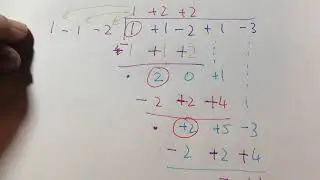 1 +2 +2
1 - 1 - 2 1 +1 -2 +1 -3
-1 +1 +2
· 2 0 +1
- 2 +2 +4 1
· +2 +5 -3
- 2 +2 +4